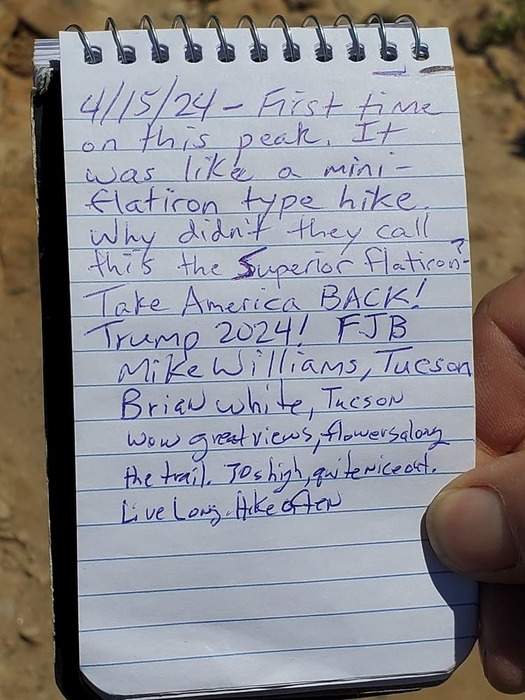 4/15/24 - First time
on this peak. It
was like a mini-
flatiron type hike.
Why didn't they call
this the Superior flatiron?
Take America BACK!
Trump 2024! FJB
Mike Williams, Tucson
Brian white, Tucson
wow great views, flowers along
the trail. 70s high, quite nice out.
Live Long. Hike often